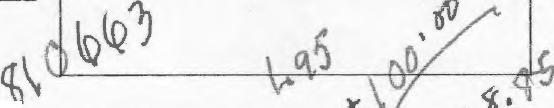 810663
1.95
+100.00
8.85